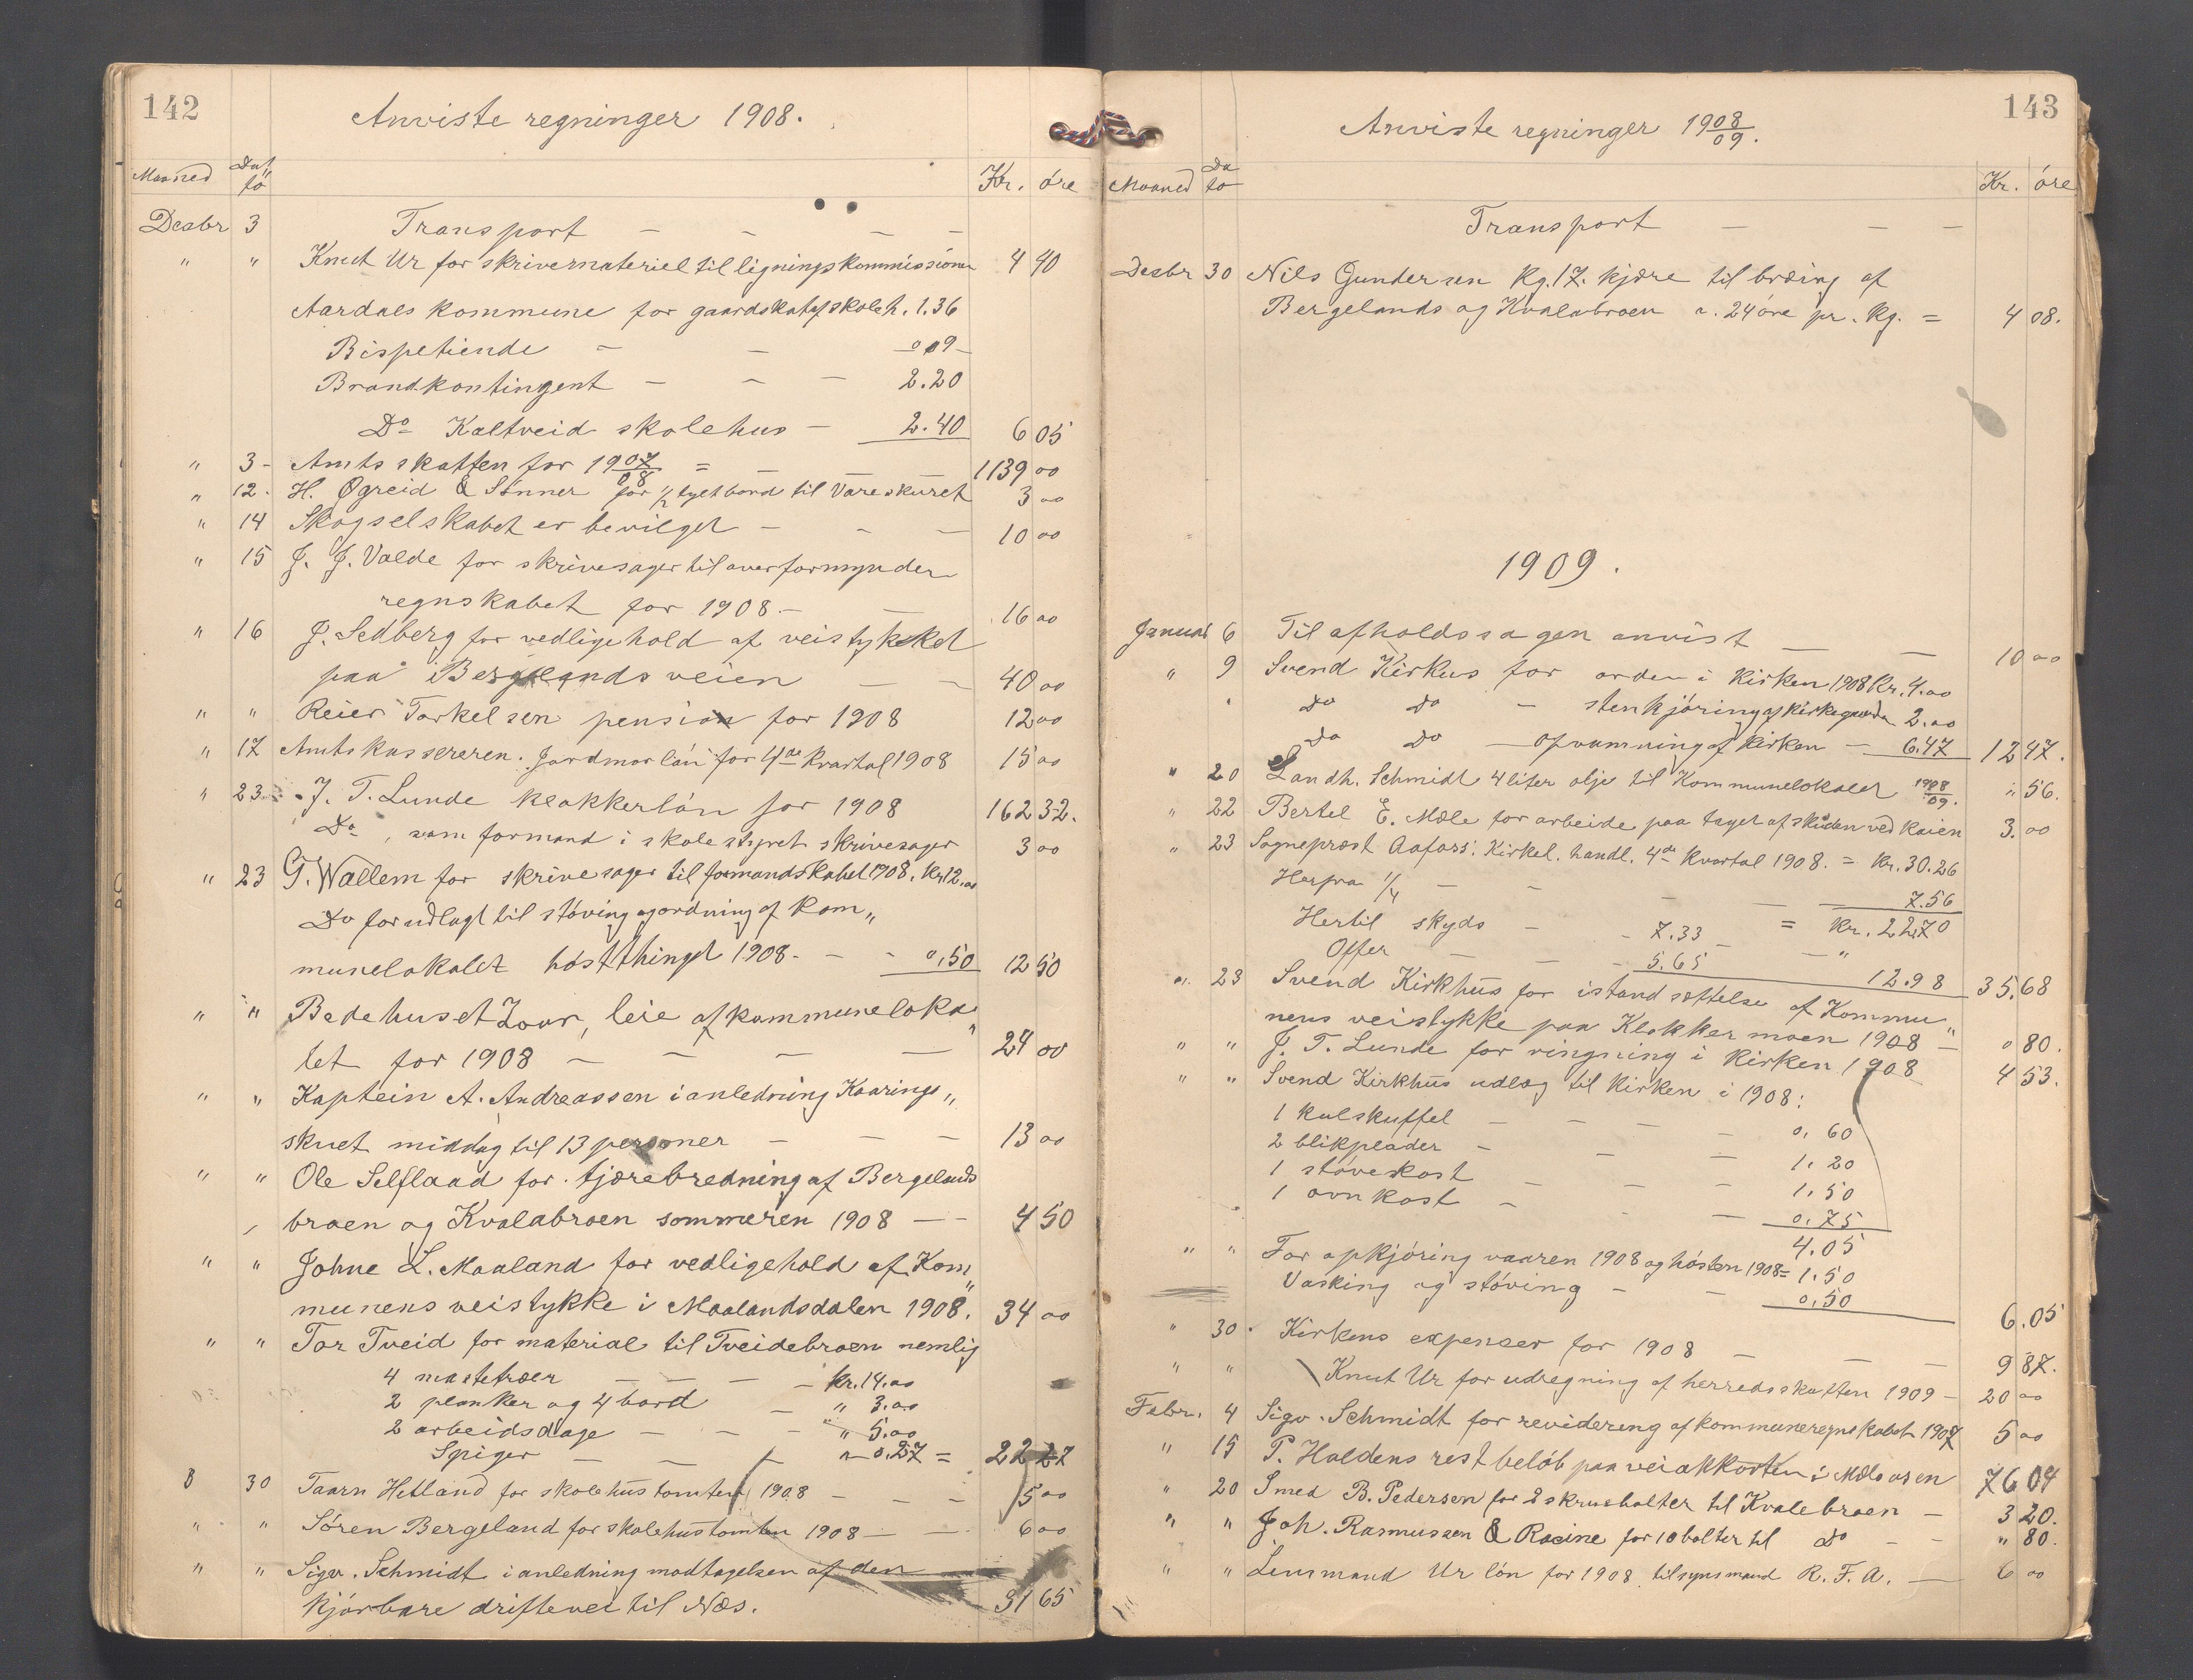 142
Anviste regninger 1908.
Maaned Dat,, to Kr. öre
Desbr 3 Transport — — — —
" " Knut Ur for skrivemateriel til ligningskommissionen 4 40
Aardals kommune for gaardskat af skoleh. 1.36
Bispetiende — — 0 09 —
Brandkontingent — — — 2.20
Do Kaltveid skolehus — 2.40 6 05
" 3 - Amtsskatten for 1907/08 = — — 1139 00
" 12. H. Øgreid & Sönner for 1/2 tylt bord til Vareskuret 3 00
" 14 Skogselskabet er bevilget — — — 10 00
" 15 J. J. Valde for skrivesager til overformynder
regnskabet for 1908 — — 16 00
" 16 J. Sedberg for vedligehold af veistykket
paa Bergelandsveien — — 40 00
" " Reier Torkelsen pension for 1908 12 00
" 17 Amtskassereren. Jordmorlön for 4de kvartal 1908 15 00
" 23. J. T. Lunde klokkerlön for 1908 162 32.
Do, som formand i skolestyret skrivesager 3 00
" 23 G. Wallem for skrivesager til formandskabet 1908. Kr 12.00
Do for udlagt til stöving og ordning af kom,,
munelokalet höstthinget 1908. — - 0,50 12 50
" " Bedehuset Zoar, leie af kommuneloka,,
let for 1908 — — — — 24 00
" " Kaptein A. Andreassen i anledning Kaarings,,
skuet middag til 13 personer — — — 13 00
" " Ole Selfland for tjærebredning af Bergelands
broen og Kvalabroen sommeren 1908 — — 4 50
" " Johne L. Maaland for vedligehold af Kom,,
munens veistykke i Maalandsdalen 1908. 34 00
" " Tor Tveid for material til Tveidebroen nemlig
4 mastetræer — — — — kr. 14.00
2 planker og 4 bord — " 3.00
2 arbeidsdage — — — " 5.00
Spiger — — — " 0.27 = 22 27
" 30 Taarn Hetland for skolehustomten 1908 — — — 5 00
" " Sören Bergeland for skolehustomten 1908 — — 6 00
" " Sigv. Schmidt i anledning modtagelsen af den
kjörbare driftevei til Næs. 31 65
143
Anviste regninger 1908/09.
Maaned Da to Kr. öre
Transport — — —
Desbr 30 Nils Gundersen kg. 17. kjære til bræing af
Bergelands og Kvalabroen a. 24 öre pr. kg. = 4 08.
1909.
Januar 6 Til afholdssagen anvist — — 10 00
" 9 Svend Kirkus for orden i kirken 1908 Kr. 4.00
" Do Do — stenkjöring af kirkegaarden 2.00
Do Do — opvarmning af kirken — 6.47 12 47.
" 20 Landh. Schmidt 4 liter olje til Kommunelokalet 1908/09. " 56.
" 22 Bertel E. Mæle for arbeide paa taget af skuden ved kaien 3. 00
" 23 Sogneprest Aafors. Kirkel. handl. 4de kvartal 1908. = kr. 30.26
Herfra 1/4 — — — — 7.56
Hertil skyds — - 7.33 = kr. 22.70
Offer — — - 5.65 — " 12.98 35.68
" 23 Svend Kirkhus for istandsættelse af Kommu,,
nens veistykke paa Klokkermoen 1908 — 0 80.
" " J. T. Lunde for ringning i kirken 1908 4 53.
" " Svend Kirkhus udlæg til kirken i 1908:
1 kulskuffel — — — — 0, 60
2 blikpleader — — — 1. 20
1 stövekost — — — 1.50
1 ovnkost — — 0.75
4.05
" " For opkjöring vaaren 1908 og hösten 1908 = 1.50
Vasking og stöving — — 0.50 6.05
" 30. Kirkens expenser for 1908 — — — 9 87.
" " Knut Ur for udregning af herredsskatten 1909 — 20 00
Febr. 4 Sigv. Schmidt for revidering af kommuneregnskabet 1907 5 00
" 15 P. Haldens restbelöb paa veiakkorten i Mæleosen 76 04
" 20 Smed B. Pedersen for 2 skruebolter til Kvalebroen — 3 20.
" " Joh. Rasmussen & Racine for 10 bolter til Do — — " 80.
" " Linsmand Ur lön for 1908 tilsynsmand R. F. A. — 6 00